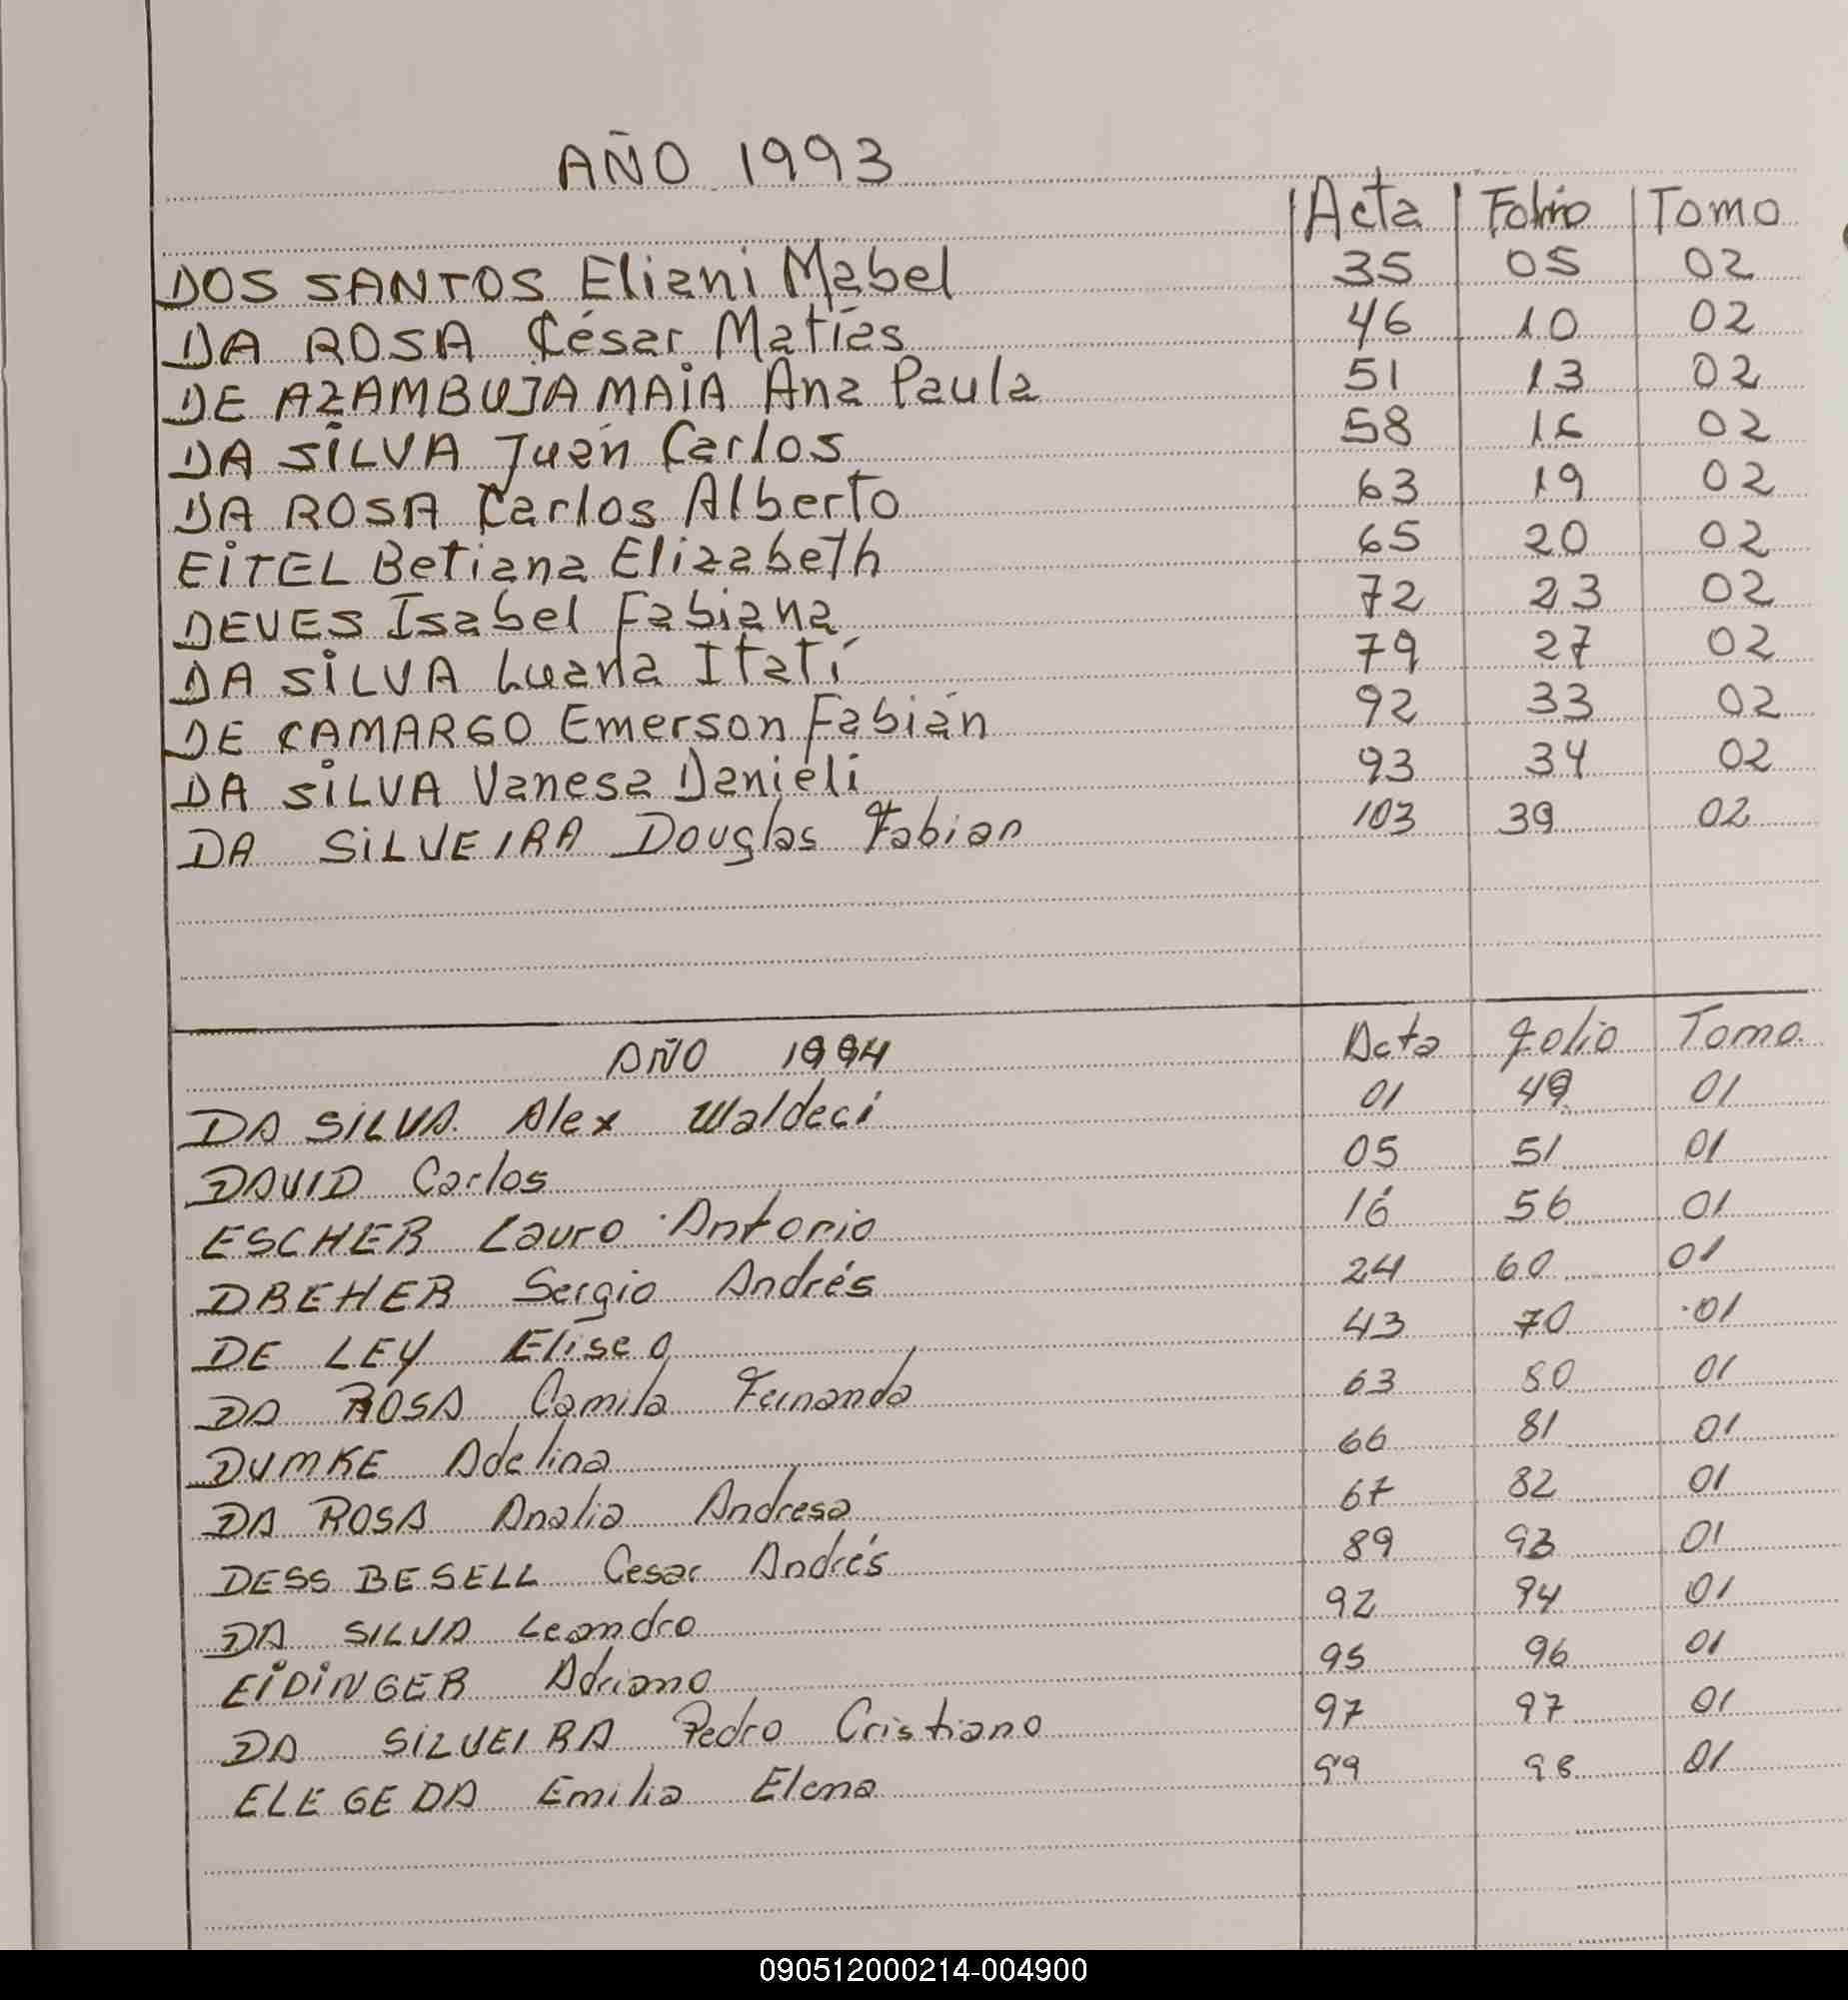 AÑO 1993
Acta Folio Tomo
DOS SANTOS Eliani Mabel 35 05 02
DA ROSA César Matías 46 10 02
DE AZAMBUJA MAIA Ana Paula 51 13 02
DA SILVA Juan Carlos 58 16 02
DA ROSA Carlos Alberto 63 19 02
EITEL Betiana Elizabeth 65 20 02
DEVES Isabel Fabiana 72 23 02
DA SILVA Luana Itatí 79 27 02
DE CAMARGO Emerson Fabián 92 33 02
DA SILVA Vanesa Danieli 93 34 02
DA SILVEIRA Douglas Fabian 103 39 02
AÑO 1994 Acta Folio Tomo
DA SILVA Alex Waldeci 01 49 01
DAVID Carlos 05 51 01
ESCHER Lauro Antonio 16 56 01
DREHER Sergio Andrés 24 60 01
DE LEY Eliseo 43 70 01
DA ROSA Camila Fernanda 63 80 01
DUMKE Adelina 66 81 01
DA ROSA Analia Andresa 67 82 01
DESS BESELL Cesar Andrés 89 93 01
DA SILVA Leandro 92 94 01
EIDINGER Adriano 95 96 01
DA SILVEIRA Pedro Cristiano 97 97 01
ELEGEDA Emilia Elena 99 98 01
090512000214-004900